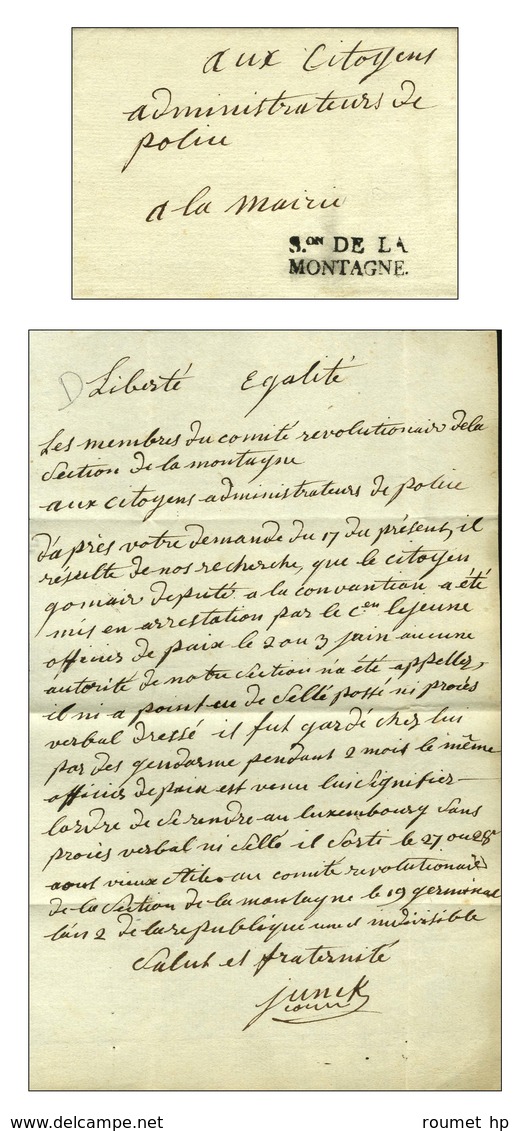 aux Citoyens
administrateurs de
police
a la mairie
S.ON DE LA
MONTAGNE.
D
Liberté Egalité
Les membres du comité revolutionair dela
Section de la montagne
aux citoyens administrateurs de police
d'après votre demande du 17 du présent, il
résulte de nos recherche, que le citoyen
gomair deputé a la convantion a été
mis en arrestation par le c.en lejeune
officier de paix le 2 ou 3 juin aucune
autorité de notre Section n'a été appellez,
il ni a point eu de Sellé possé ni procès
verbal dressé il fut gardé chez lui
par des gendarme pendant 2 mois le même
officier de paix est venu lui Signifier
lordre de Se rendre au luxembourg Sans
procès verbal ni Sellé il Sorti le 27 ou 28
aout vieux Stile. au comité revolutionaire
de la Section de la montagne le 19 germinal
lan 2 de la republique une et indivisible
Salut et fraternité
junck
roumet hp